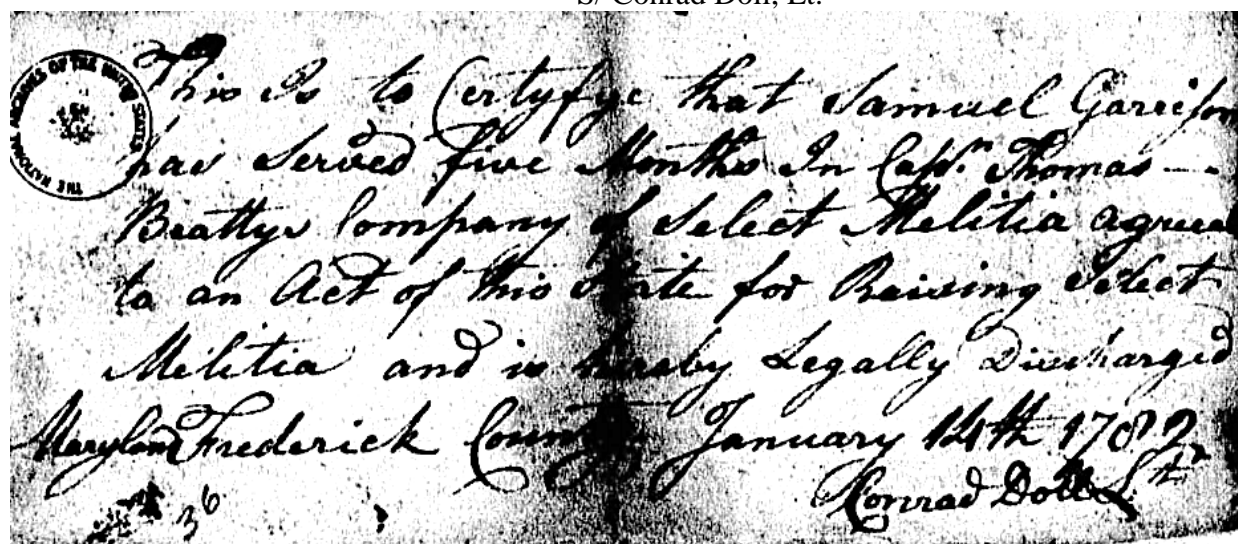 S/ Conrad Doll, Lt.
THE NATIONAL ARCHIVES OF THE UNITED STATES
This Is to Certyfye that Samuel Garrison
has Served five Months In Capt.n Thomas —
Beattys Company of Select Melitia agreeabl
to an Act of this State for Raising Select
Militia and is hereby Legally Discharged
Maryland Frederick County January 14th 1782
Conrad Doll Lt
36